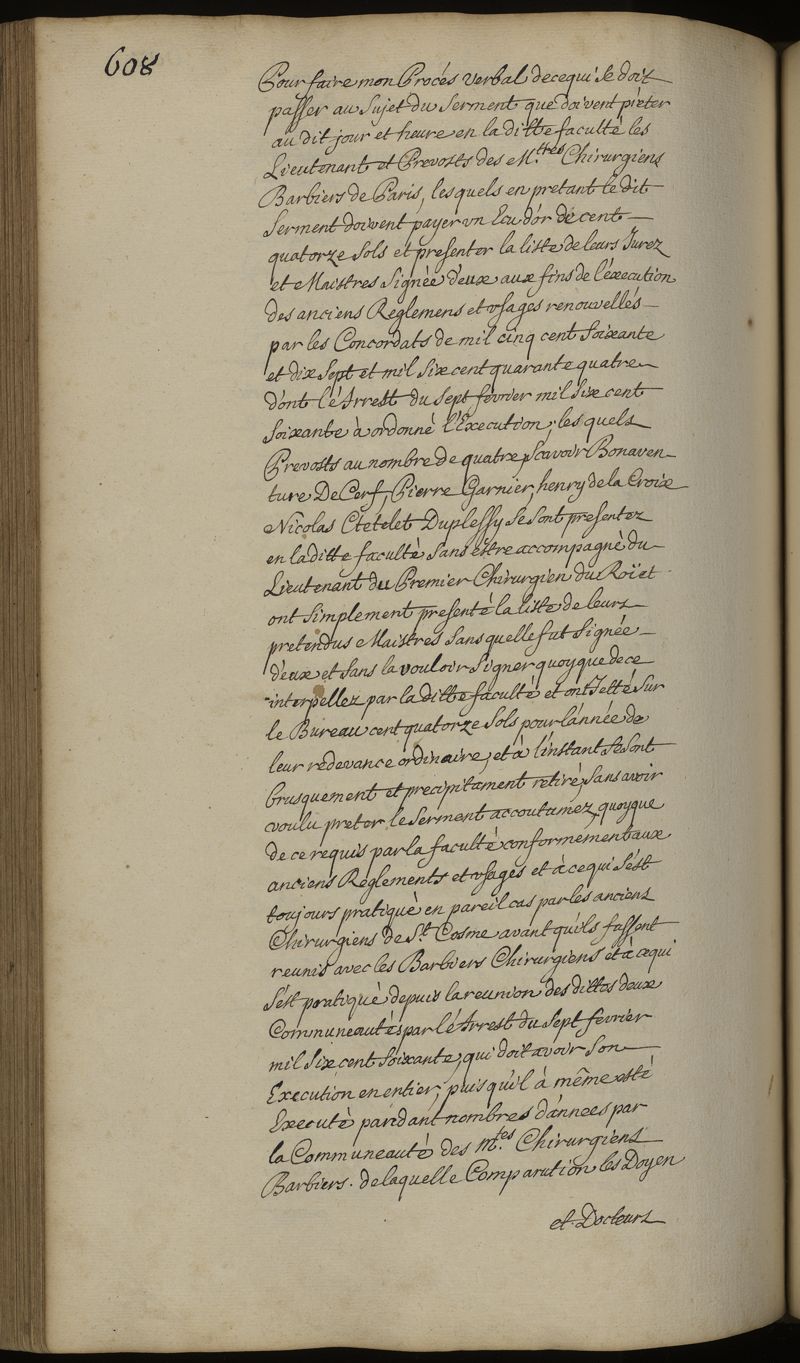 608
Pour faire mon Procés verbal de ce qui se doit
passer au sujet du serment que doivent préter
au dit jour et heure en la ditte faculté les
Lieutenant et Prevosts des M.tres Chirurgiens
Barbiers de Paris, lesquels en pretant le dit
serment doivent payer vn Ecu d'or de cent
quatorze sols et presenter la liste de leurs Jurez
et Maistres signée d'eux aux fins de l'éxecution
des anciens Reglemens et vsages renouvellés
par les Concordats de mil cinq cent soixante
et dix sept et mil six cent quarante quatre
dont l'Arrest du sept février mil six cent
soixante à ordonné l'Execution, les quels
Prevosts au nombre de quatre scavoir Bonaven-
ture De Cerf, Pierre Garnier, henry de la Croix
Nicolas Ctetelet Duplessy se sont presentez
en la ditte faculté sans estre accompagné du
Lieutenant du Premier Chirurgien du Roï et
ont simplement presenté la liste de leurs
pretendus Maistres sans quelle fut signée
d'eux et sans la vouloir signer quoyque de ce
interpellez par la ditte faculté et ont Jetté sur
le Bureau cent quatorze sols pour l'année de
leur redevance ordinaire, et à l'instant se sont
brusquement et precipitament retiré, sans avoir
voulu preter le serment accoutumez, quoyque
de ce requis par la faculté conformement aux
anciens Reglements et vsages et à ce qui s'ést
toujours pratiqué en pareil cas par les anciens
Chirurgiens de S.t Cosme avant qu'ils fussent
reunis avec les Barbiers Chirurgiens et à ce qui
s'ést pratiqué depuis la reunion des dittes deux
Communeautés par l'Arrest du sept fevrier
mil six cent soixante, qui doit avoir son
Execution en entier, puisqu'il à même esté
Executé pandant nombres d'années par
la Communeauté des M.tes Chirurgiens
Barbiers. de laquelle Comparution les Doyen
et Docteurs